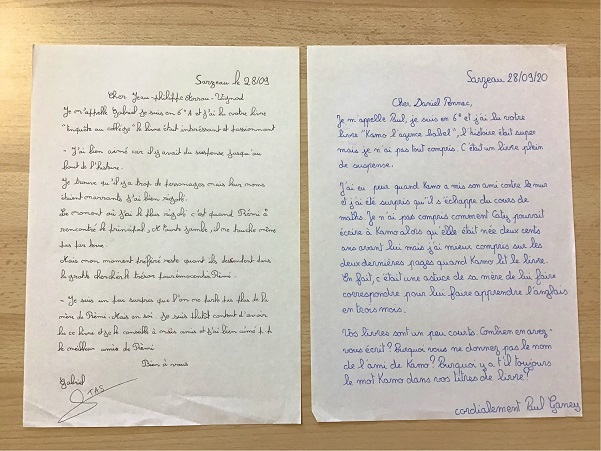 Sarzeau le 28/09
Cher Jean-philippe Arrou-Vignod
Je m'appelle Gabriel je suis en 6°A et j'ai lu votre livre
"Enquête au collège" le livre était intéressant et passionnant
- J'ai bien aimé car il y avait du suspense jusqu'au
bout de l'histoire.
Je trouve qu'il y a trop de personnages mais leur noms
étaient marrants j'ai bien rigolé.
Le moment où j'ai le plus rigolé c'est quand Rémi à
rencontré le principal,
pas
Mais mon moment préféré reste quand ils descendent dans
la grotte cherchér le trésor Rémi.
- Je suis un peu surpris que l'on ne parle pas plus de la
mère de Rémi. Mais en soi. Je suis plutôt content d'avoir
lu ce livre et je le conseille à mes amis et j'ai bien aimé
le meilleur amie de Rémi
Bien à vous
Gabriel
TAS
Sarzeau 28/09/20
Cher Daniel Pennac,
Je m'appelle Paul, je suis en 6° et j'ai lu votre
livre "Kamo l'agence babel", l'histoire était super
mais je n'ai pas tout compris. C'était un livre plein
de suspense.
J'ai eu peur quand Kamo a mis son ami contre le mur
et j'ai été surpris qu'il s'échappe du cours de
maths. Je n'ai pas compris comment Caty pourrait
écrire à Kamo alors qu'elle était née deux cents
ans avant lui mais j'ai mieux compris sur les
deux dernières pages quand Kamo lit le livre.
En fait, c'était une astuce de sa mère de lui faire
correspondre pour lui faire apprendre l'anglais
en trois mois.
Vos livres sont un peu courts. Combien en avez-
vous écrit? Pourquoi vous ne donnez pas le nom
de l'ami de Kamo? Pourquoi y a t'il toujours
le mot Kamo dans vos titres de livre?
cordialement Paul Ganey